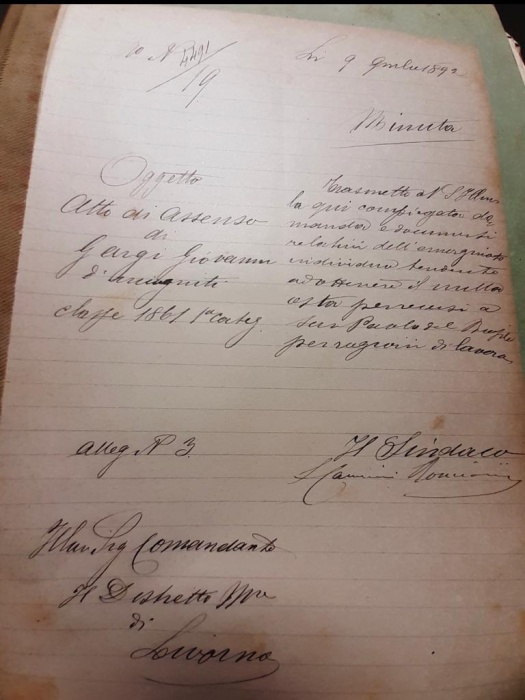 N 4491
19
Li 9 Giugno 1892
Minuta
Oggetto
Atto di assenso
di
Gergi Giovanni
d'incogniti
classe 1861 1a categ
Trasmetto a V. S. Illma
la qui compiegata do
manda e documenti
relativi dell'emarginato
individuo tendente
ad ottenere il nulla
osta per recarsi a
San Paolo del Brasile
per ragioni di lavoro
alleg N 3
Il Sindaco
Illmo Sig Comandante
Il Distretto Mre
di
Livorno